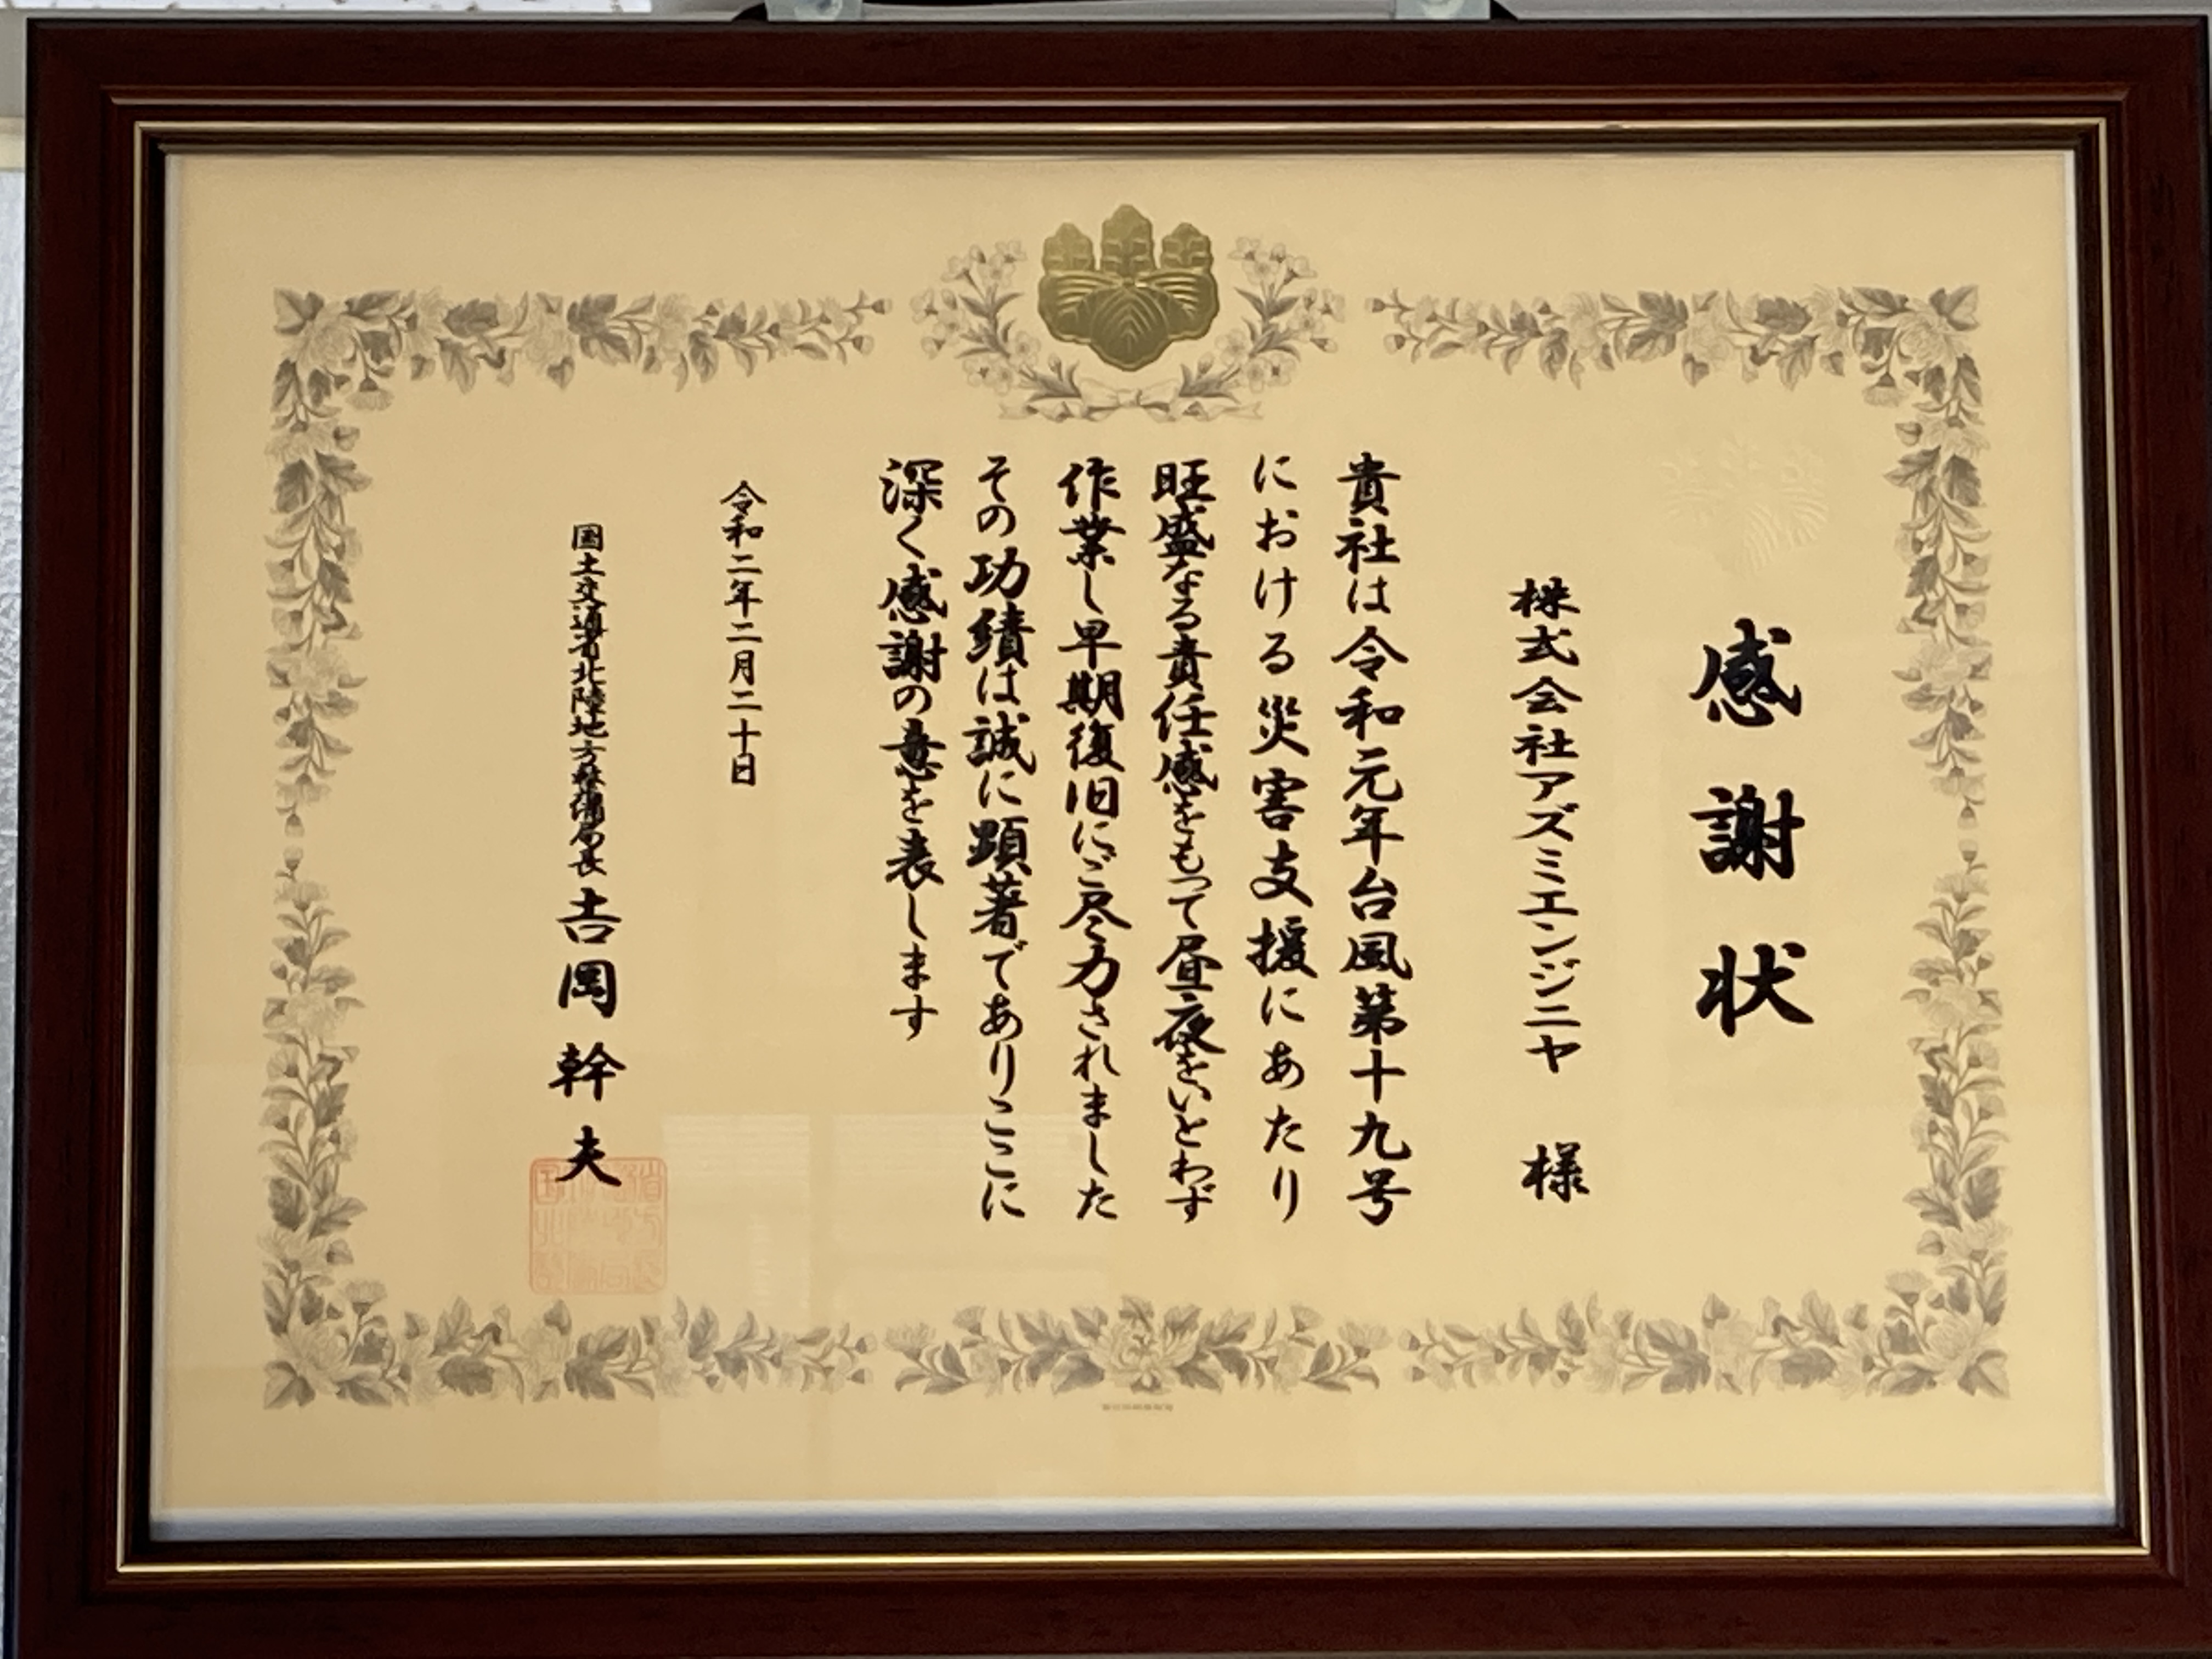 感謝状
株式会社アズミエンジニヤ 様
貴社は令和元年台風第十九号
における災害支援にあたり
旺盛なる責任感をもって昼夜をいとわず
作業し早期復旧にご尽力されました
その功績は誠に顕著でありここに
深く感謝の意を表します
令和二年二月二十日
国土交通省北陸地方整備局長 吉岡幹夫